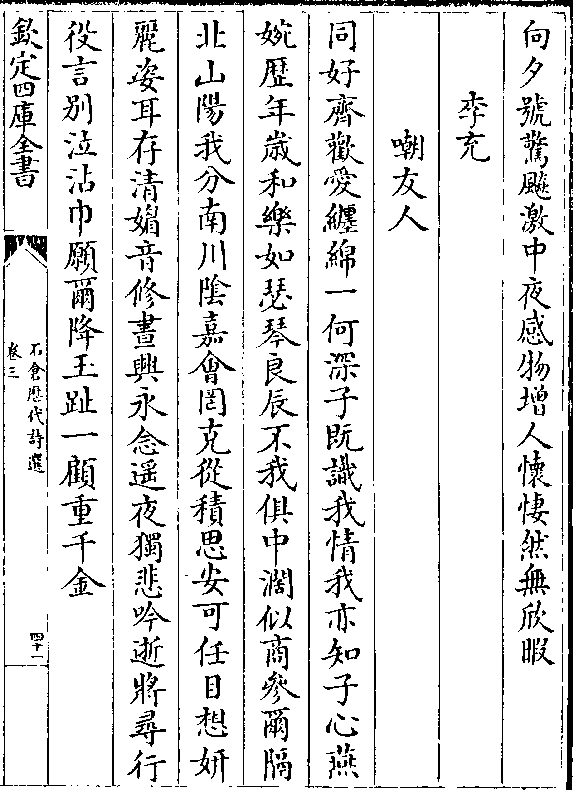 向夕號驚飈激中夜感物增人懷悽然無欣暇
李充
嘲友人
同好齊歡愛纏綿一何深子既識我情我亦知子心燕
婉歷年歲和樂如瑟琴良辰不我俱中濶似商參爾隔
北山陽我分南川隂嘉會罔克從積思安可任目想妍
麗姿耳存清媚音修晝興永念遥夜獨悲吟逝將尋行
役言別泣沾巾願爾降玉趾一顧重千金
欽定四庫全書
石倉歷代詩選
卷三
四十一